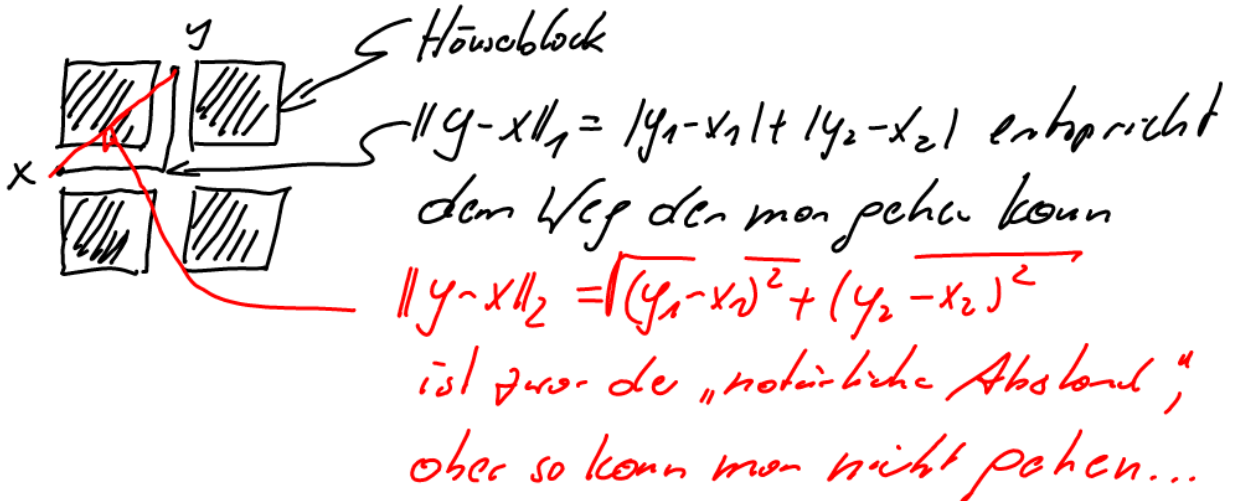 y
Häuserblock
x
‖y-x‖₁ = |y₁-x₁| + |y₂-x₂| entspricht
dem Weg den man gehen kann
‖y-x‖₂ = √((y₁-x₁)² + (y₂-x₂)²)
ist zwar der „natürliche Abstand",
aber so kann man nicht gehen...